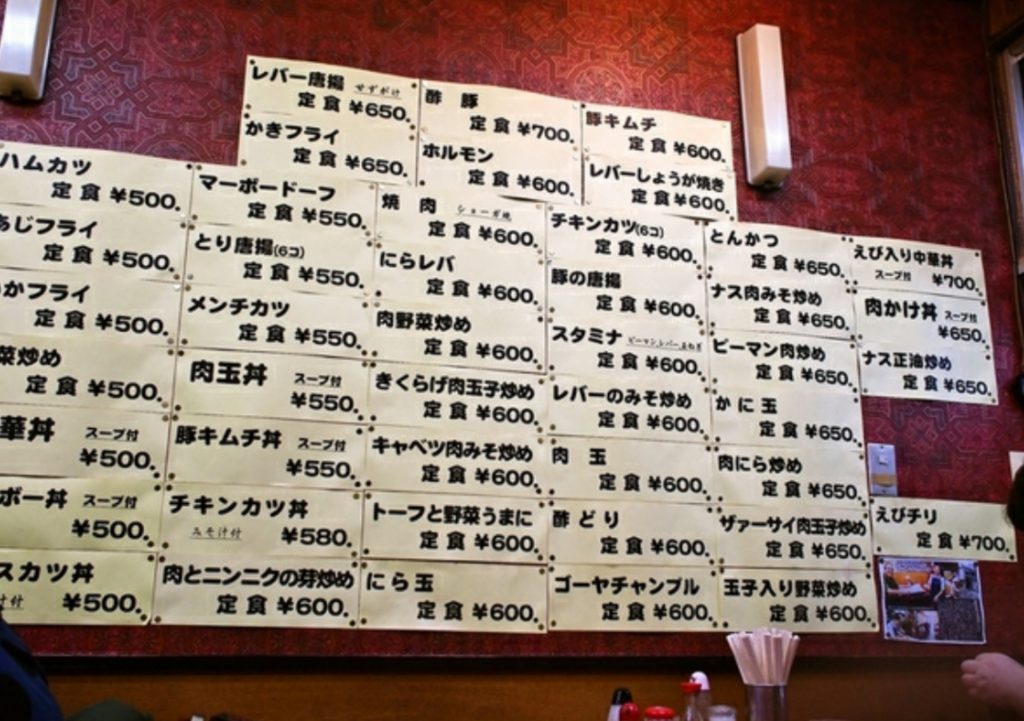 レバー唐揚 せずがけ
定食 ¥650.
かきフライ
定食 ¥650.
酢豚
定食 ¥700.
ホルモン
定食 ¥600.
豚キムチ
定食 ¥600.
レバーしょうが焼き
定食 ¥600.
ハムカツ
定食 ¥500.
あじフライ
定食 ¥500.
かフライ
定食 ¥500.
菜炒め
定食 ¥500.
華丼 スープ付
¥500.
ボー丼 スープ付
¥500.
スカツ丼
汁付 ¥500.
マーボードーフ
定食 ¥550.
とり唐揚(6コ)
定食 ¥550.
メンチカツ
定食 ¥550.
肉玉丼 スープ付
¥550.
豚キムチ丼 スープ付
¥550.
チキンカツ丼
みそ汁付 ¥580.
肉とニンニクの芽炒め
定食 ¥600.
焼肉 ショーガ焼
定食 ¥600.
にらレバ
定食 ¥600.
肉野菜炒め
定食 ¥600.
きくらげ肉玉子炒め
定食 ¥600.
キャベツ肉みそ炒め
定食 ¥600.
トーフと野菜うまに
定食 ¥600.
にら玉
定食 ¥600.
チキンカツ(6コ)
定食 ¥600.
豚の唐揚
定食 ¥600.
スタミナ ピーマン、レバー、玉ねぎ
定食 ¥600.
レバーのみそ炒め
定食 ¥600.
肉玉
定食 ¥600.
酢どり
定食 ¥600.
ゴーヤチャンプル
定食 ¥600.
とんかつ
定食 ¥650.
ナス肉みそ炒め
定食 ¥650.
ピーマン肉炒め
定食 ¥650.
かに玉
定食 ¥650.
肉にら炒め
定食 ¥650.
ザァーサイ肉玉子炒め
定食 ¥650.
玉子入り野菜炒め
定食 ¥600.
えび入り中華丼
スープ付 ¥700.
肉かけ丼 スープ付
¥650.
ナス正油炒め
定食 ¥650.
えびチリ
定食 ¥700.